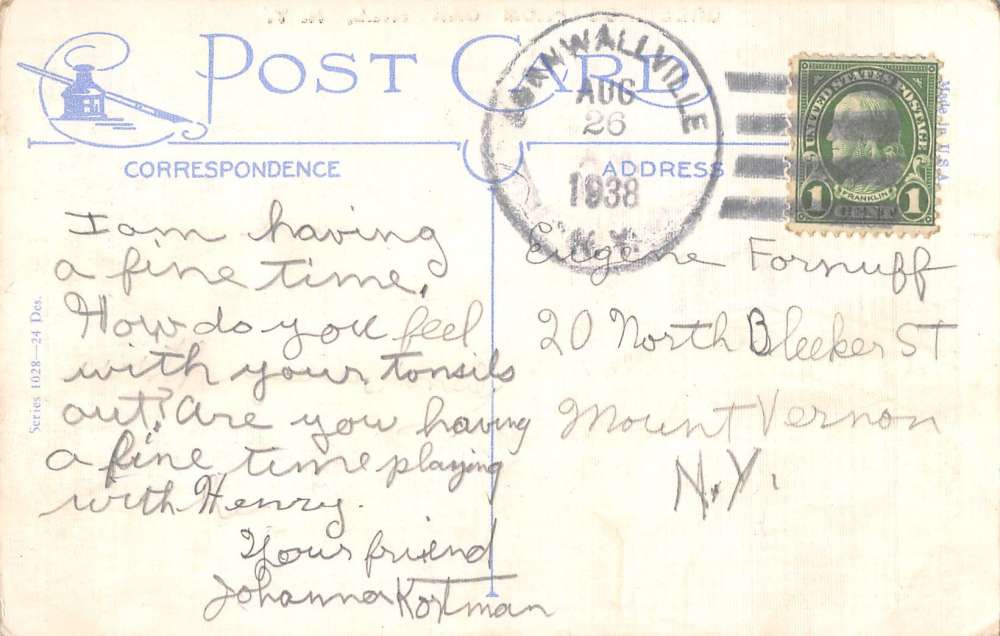 POST CARD
CORRESPONDENCE
ADDRESS
AUG
26
1938
N.Y.
UNITED STATES POSTAGE
FRANKLIN
1 CENT 1
Made in U.S.A.
Series 1028—24 Des.
I am having
a fine time.
How do you feel
with your tonsils
out? Are you having
a fine time playing
with Henry.
Your friend
Johanna Kortman
Eugene Fornuff
20 North Bleeker ST
Mount Vernon
N.Y.